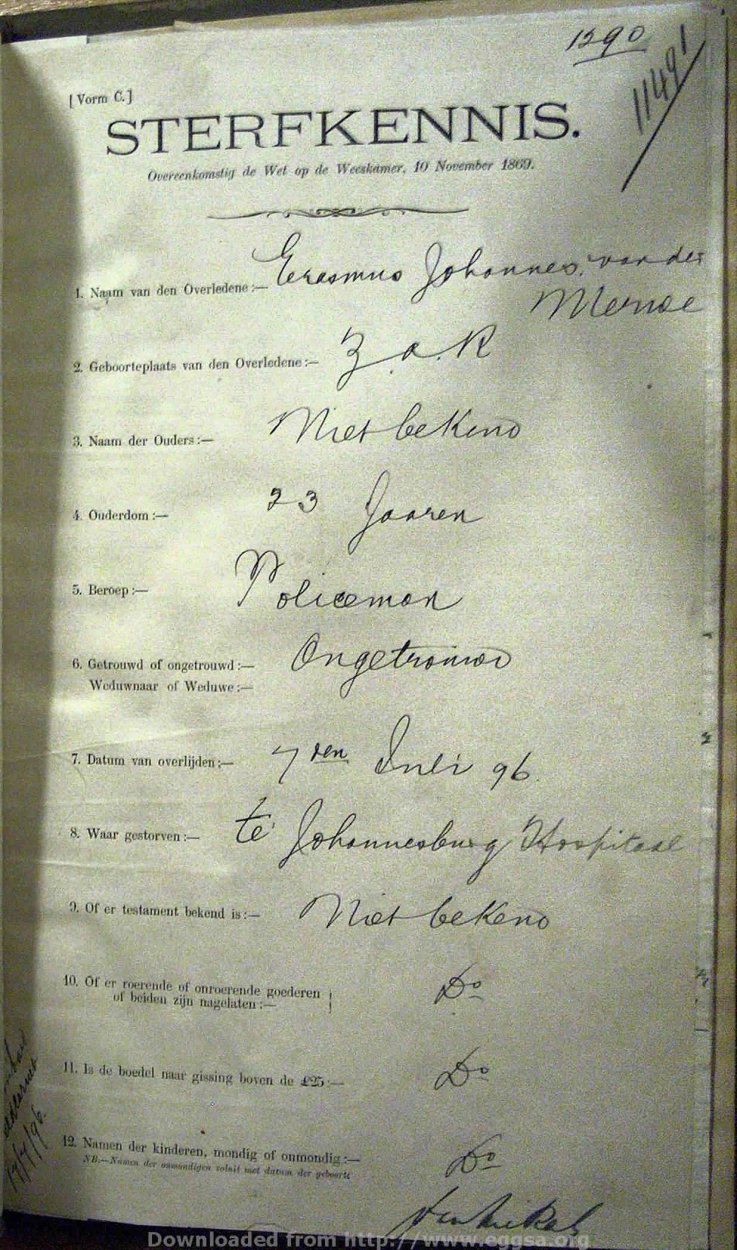 1290
11491
[Vorm C.]
STERFKENNIS.
Overeenkomstig de Wet op de Weeskamer, 10 November 1869.
1. Naam van den Overledene :— Erasmus Johannes van der
Merwe
2. Geboorteplaats van den Overledene :— Z.A.R
3. Naam der Ouders :— Niet bekend
4. Ouderdom :— 23 Jaaren
5. Beroep :— Policeman
6. Getrouwd of ongetrouwd :— Ongetrouwd
Weduwnaar of Weduwe :—
7. Datum van overlijden :— 7den Juli 96.
8. Waar gestorven :— te Johannesburg Hospitaal
9. Of er testament bekend is :— Niet bekend
10. Of er roerende of onroerende goederen
of beiden zijn nagelaten :— Do
11. Is de boedel naar gissing boven de £25 :— Do
12. Namen der kinderen, mondig of onmondig :— Do
NB.—Namen der onmondigen voluit met datum der geboorte
17/7/96.
Downloaded from http://www.eggsa.org